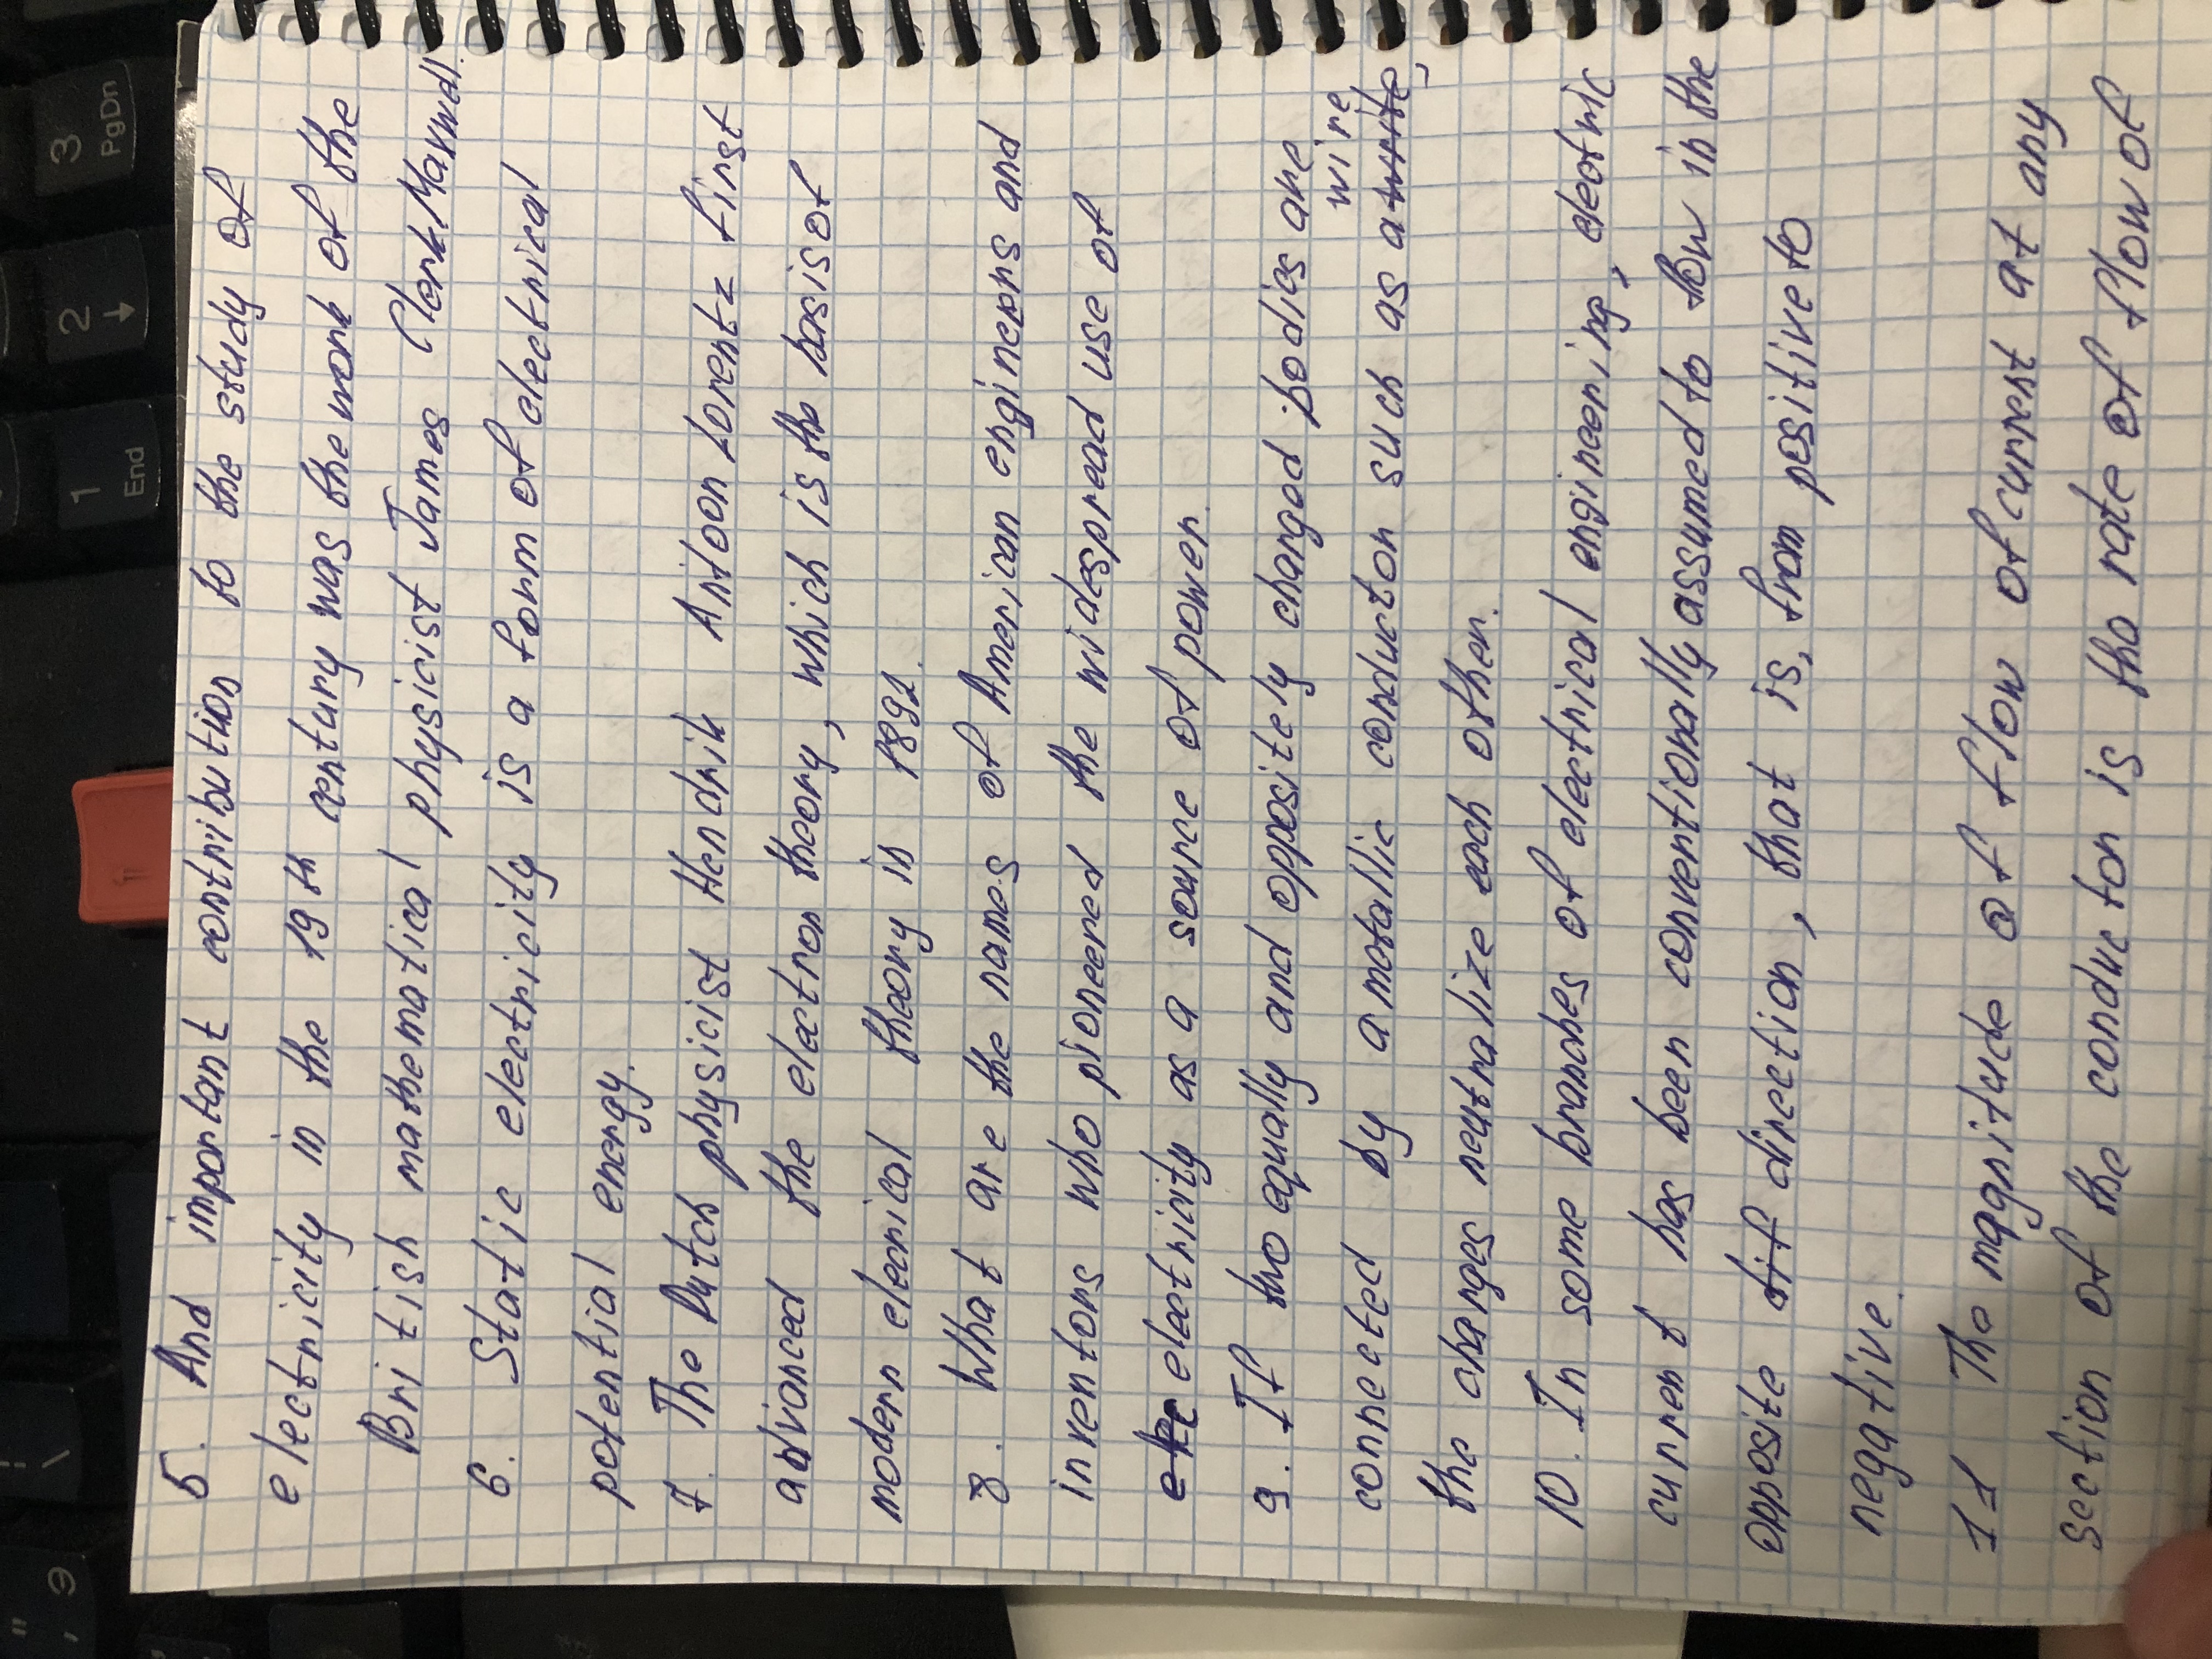 5. And important contribution to the study of
electricity in the 19th century was the work of the
British mathematical physicist James Clerk Maxwell.
6. Static electricity is a form of electrical
potential energy.
7. The Dutch physicist Hendrik Antoon Lorentz first
advanced the electron theory, which is the basis of
modern elecrical theory in 1892.
8. What are the names of American engineers and
inventors who pioneered the widespread use of
electricity as a source of power.
9. If two equally and oppositely charged bodies are
connected by a metallic conductor such as a wire,
the charges neutralize each other.
10. In some branches of electrical engineering, electric
current has been conventionally assumed to flow in the
opposite direction, that is, from positive to
negative.
11 The magnitude of flow of current at any
section of the conductor is the rate of flow of
3 PgDn
2 ↓
1 End
Э